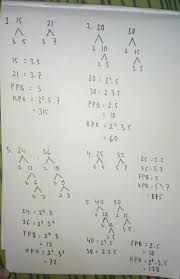 1. 15 21
3 5 3 7
15 = 3.5
21 = 3.7
FPB = 3
KPK = 3².5.7
= 315
2. 20 30
2 10 2 15
2 5 3 5
20 = 2².5
30 = 2.3.5
FPB = 2.5
= 10
KPK = 2².3.5
= 60
3. 24 36
2 12 2 18
2 6 2 9
2 3 3 3
24 = 2³.3
36 = 2².3²
FPB = 2².3
= 12
KPK = 2³.3²
= 72
4. 25 35
5 5 5 7
25 = 5.5
35 = 5.7
FPB = 5
KPK = 5².7
5. 40 30
2 20 2 15
2 10 3 5
2 5
40 = 2³.5
30 = 2.3.5
FPB = 2.5
= 10
KPK = 2³.3.5
= 120